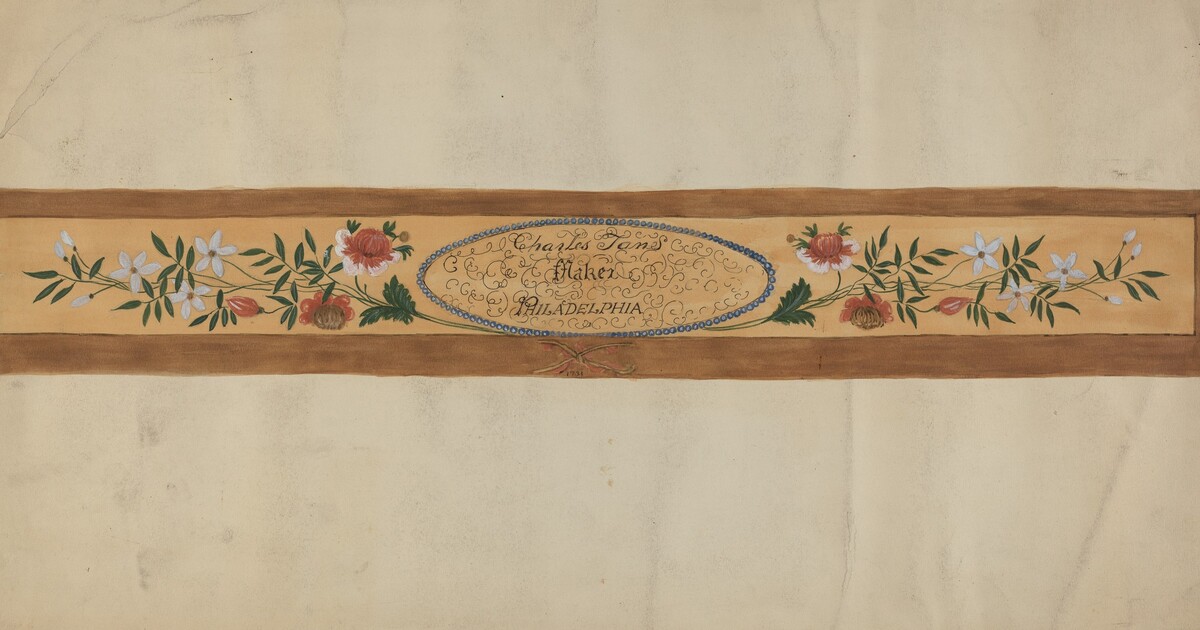 Charles Taws
Maker
PHILADELPHIA